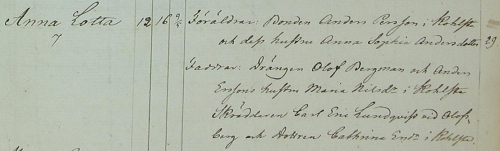 Anna Lotta 12 16 Föräldrar: Bonden Anders Persson i Kohlsta
7 och dess hustru Anna Sophia Andersdotter 29
Faddrar: Drängen Olof Bergman och Anders
Erssons hustru Maria Nilsdr i Kohlsta
Skräddaren Carl Eric Lundqvist vid Olofs-
berg och dottren Cathrina i Kohlsta